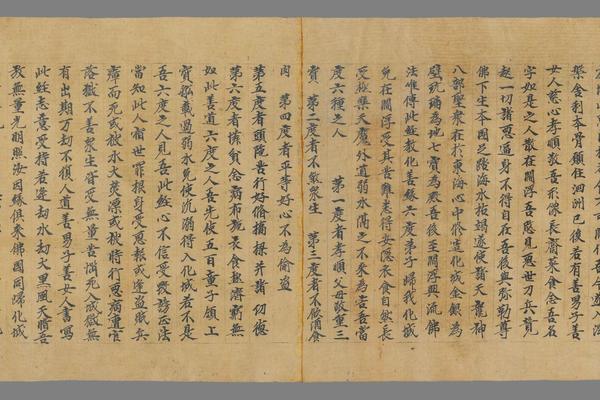 槃舍利本骨願住泗洲已後若有善男子善
女人慈心孝順敬吾形像長齋菜食念吾名
字如是之人散在閻浮吾愍見惡世刀兵競
起一切諸惡逼身不得自在吾後與弥勒尊
佛下生本國足踏海水枯竭遂使諸天龍神
八部聖衆在於東海心中修造化城金銀為
壁琉璃為地七寶為殿吾後至閻浮興流佛
法唯傳此經教化善緣六度弟子歸我化城
免在閻浮受其苦難悉得安隱衣食自然長
受極樂天魔外道弱水隔之不來為害吾當
度六種之人 第一度者孝順父母敬重三
寶 第二度者不煞衆生 第三度者不飲酒食
肉 第四度者平等好心不為偷盜
第五度者頭陁苦行好修橋樑并諸功德
第六度者憐貧念病布施衣食極濟窮無
如此善道六度之人吾先使五百童子領上
寶船載過弱水免使沉溺得入化城若不是
吾六度之人見吾此經心不信受毀謗正法
當知此人宿世罪根身受惡報或逢盜賊兵
瘴而死或被水火焚漂或被時行惡病遭官
落獄不善衆生皆受無量苦惱死入地獄無
有出期万劫不復人道善男子善女人書寫
此經志意受持若逢劫水劫火黑風天暗吾
放無量光明照汝因緣俱來佛國同歸化城